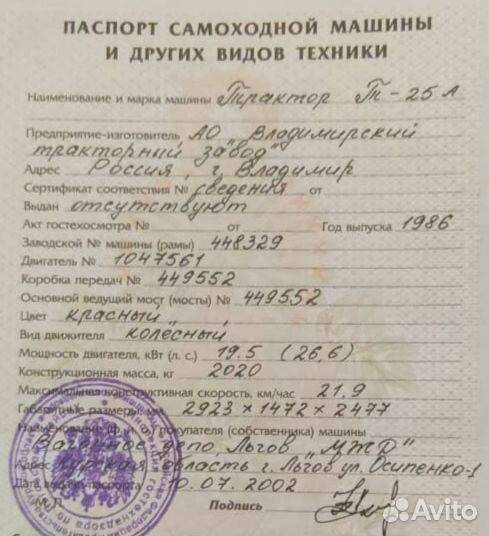 ПАСПОРТ САМОХОДНОЙ МАШИНЫ
И ДРУГИХ ВИДОВ ТЕХНИКИ
Наименование и марка машины Трактор Т-25 А
Предприятие-изготовитель АО "Владимирский
тракторный завод"
Адрес Россия, г. Владимир
Сертификат соответствия № сведения от
Выдан отсутствуют
Акт гостехосмотра № от Год выпуска 1986
Заводской № машины (рамы) 448329
Двигатель № 1047561
Коробка передач № 449552
Основной ведущий мост (мосты) № 449552
Цвет красный
Вид движителя колёсный
Мощность двигателя, кВт (л. с.) 19.5 (26,6)
Конструкционная масса, кг 2020
Максимальная конструктивная скорость, км/час 21.9
Габаритные размеры, мм 2923 × 1472 × 2477
Наименование (ф. и. о.) покупателя (собственника) машины
Вагонное депо Льгов "МЖД"
Адрес Курская область г. Льгов ул. Осипенко-1
Дата выдачи паспорта 10.07.2002
Подпись
Avito